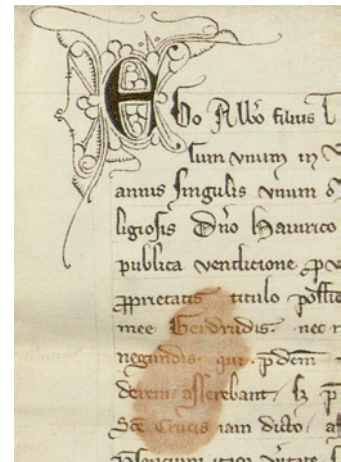 EGo Albo filius
sum vnum in
annis singulis vnum
ligiosis Dno Hainrico
publica vendicione
pprietatis titulo
mee Gerdrudis. nec
negundis. qui. pdcm
derem asserebant / sz
Sce Crucis iam dicto